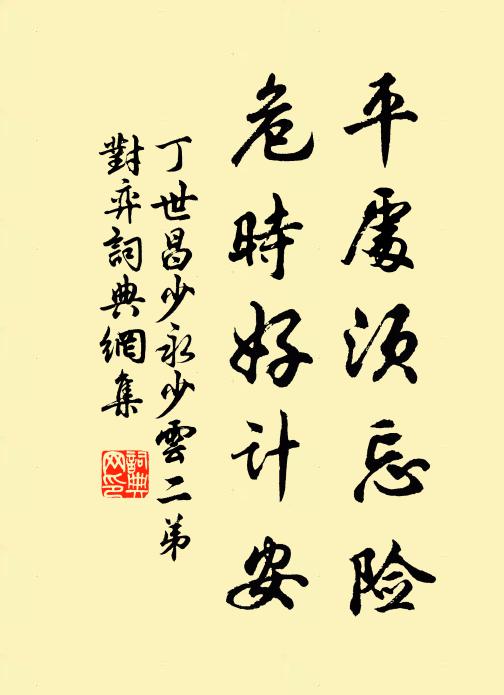 平處須忘險
危時好计安
丁世昌少永少雲二弟
對弈詞典網集
詞典
网印